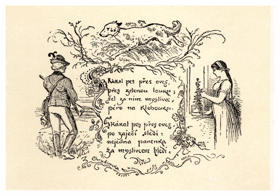 Skákal pes přes oves,
přes zelenou louku:
šel za ním myslivec,
péro na klobouku.
Skákal pes přes oves,
po zaječí sledi:
nejedna panenka
za myslivcem hledí.